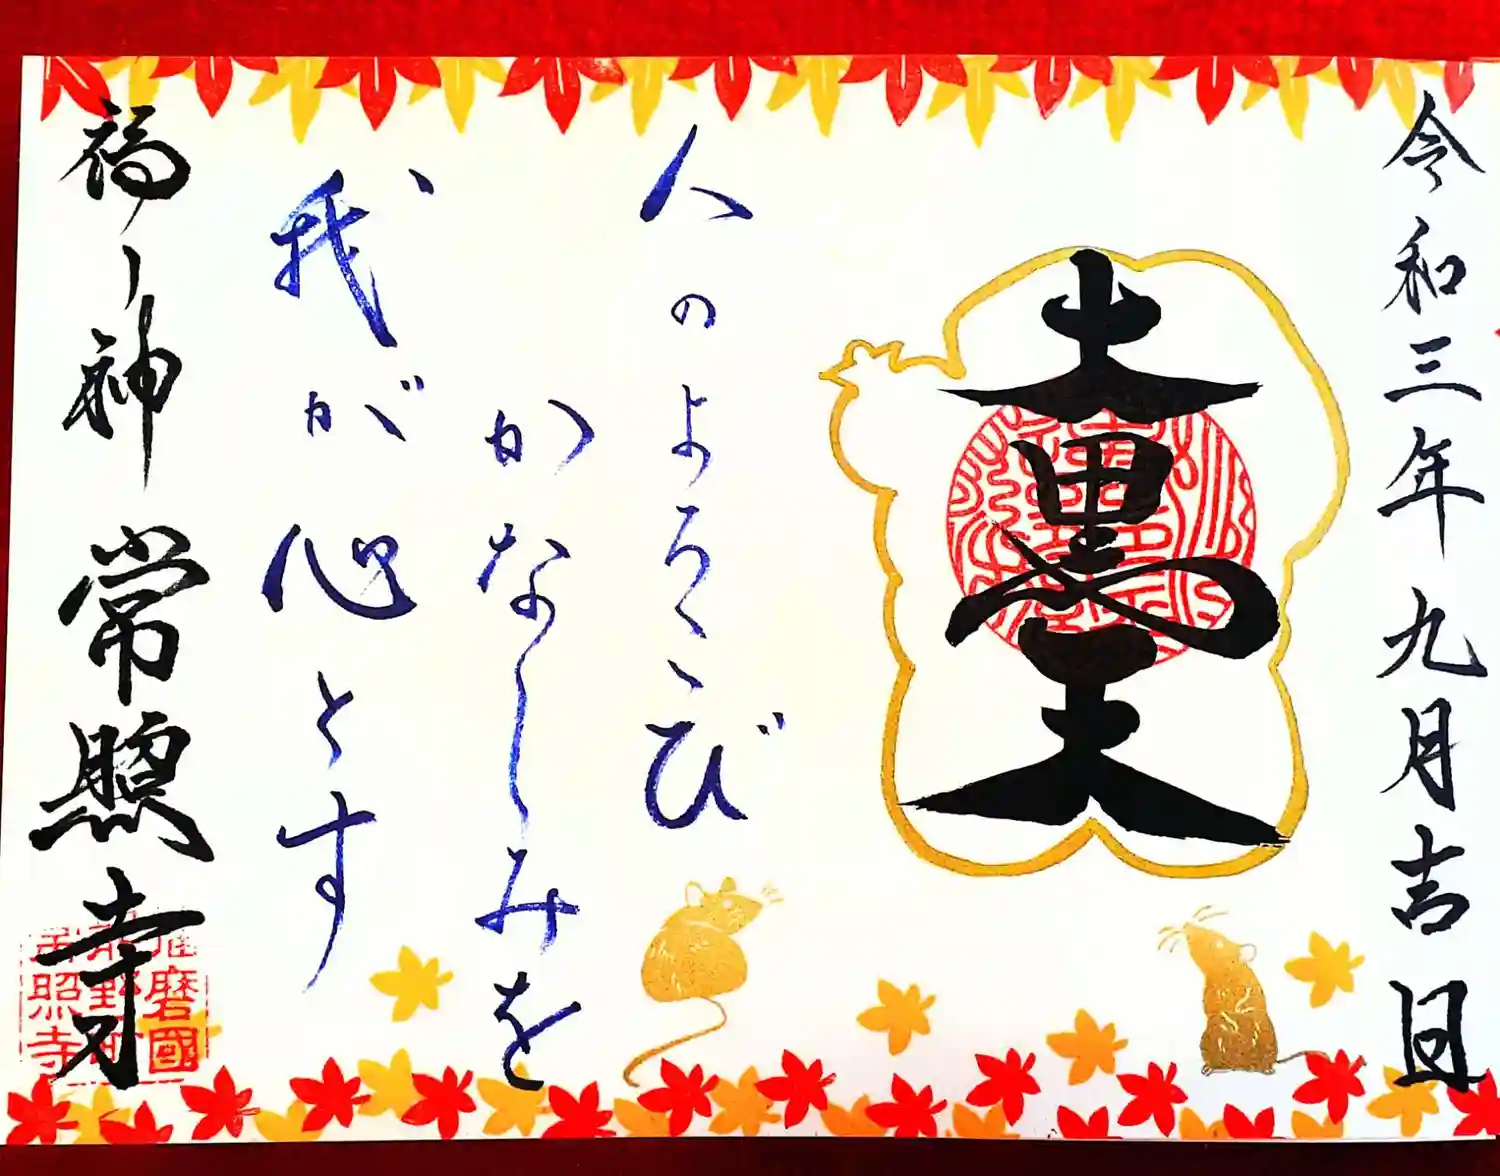 令和三年九月吉日
大黒天
人のよろこび
かなしみを
我が心とす
福ノ神 常照寺
磨國
野町
照寺